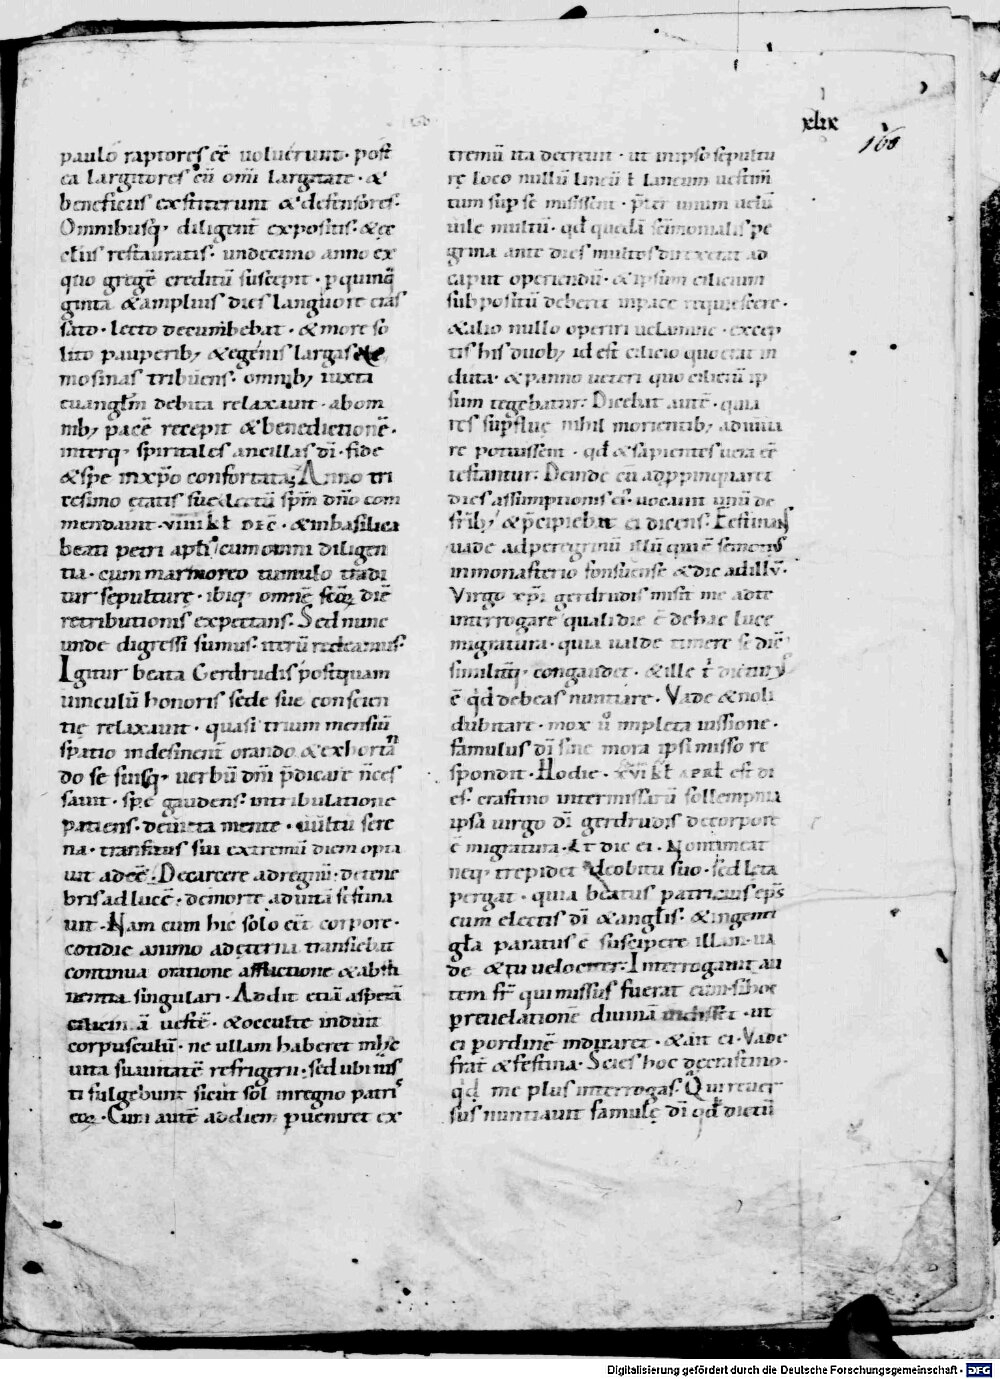 xlix
168
paulo raptores eē uoluerunt· post
ea largitores cū omī largitate· &
beneficus exstiterunt & defensores·
Omnibusq; diligent expositis· & ęc
clīis restauratis· undecimo anno ex
quo gregē creditū suscepit· p quinq̄
ginta & amplius dies languore cras
sato· lecto decumbebat· & more so
lito pauperib; & egenis largas ele
mosinas tribuens· omnib; iuxta
euangłm debita relaxauit· ab om
nib; pacē recepit & benedictionē·
interq; spiritales ancillas dī· fide
& spe in xp̄o confortatas· Anno tri
cesimo ętatis suę lectū sp̄m dn̄o com
mendauit· viiii kł dec̄· & in basilica
beati petri apłi cum omni diligen
tia· cum marmoreo tumulo tradi
tur sepulturę· ibiq; omnē scōꝝ diē
retributionis expectans· Sed nunc
unde digressi sumus· iterū redeamus·
Igitur beata Gerdrudis postquam
uinculū honoris sede sue conscien
tię relaxauit· quasi trium mensiū
spatio indesinent orando & exhortan
do se suisq; uerbū dn̄i p̄dicare n̄ ces
sauit· spe gaudens· in tribulatione
patiens· deuicta mente· uultu sere
na· transitus sui extremū diem opta
uit adeē· De carcere ad regnū· de tene
bris ad lucē· de morte ad uitā festina
uit· Nam cum hic solo eēt corpore·
cotidie animo ad ęterna transiebat
continua oratione afflictione & absti
nentia singulari· Addit etiā asperā
ciliciniā uestē· & occulte induit
corpusculū· ne ullam haberet in hac
uita suauitatē refrigerii· sed ubi ius
ti fulgebunt sicut sol in regno patris
eoꝝ· Cum autē ad diem pueniret ex
tremū ita decreuit· ut in ipso sepultu
rę loco nullū lineū ł laneum uestim̄
tum sup se misissent· p̄ter unum uelū
uile multū· qd quedā scīmonialis pe
grina ante dies multos direxerat ad
caput operiendū· & ipsum cilicium
subpositū deberet in pace requiescere·
& alio nullo operiri uelamine· excep
tis his duob; id est cilicio quo erat in
duta· & panno ueteri quo ciliciū ip
sum tegebatur· Dicebat autē· quia
res sup̄fluę nihil morientib; adiuua
re potuissent· qd & sapientes uera eē
testantur· Deinde cū adppinquaret
dies assumptionis ei· uocauit unū de
frīb; & p̄cipiebat ei dicens· Festinans
uade ad peregrinū illū qui ē semotis
in monasterio fonsuense & dic ad illū·
Virgo xp̄i gerdrudis misit me ad te
interrogare quali die ē de hac luce
migratura· quia ualde timere se diē
similitq; congaudet· & ille t dictur
ē qd debeas nuntiare· Vade & noli
dubitare· mox u impleta iussione·
famulus dī sine mora ipsi misso re
spondit· Hodie· xvi kł apɍł est di
es· crastino inter missarū sollempnia
ipsa uirgo dī gerdrudis de corpore
ē migratura· Et dic ei· Non timeat
neq; trepidet de obitu suo· sed lęta
pergat· quia beatus patricius ep̄s
cum electis dī & anglis· & ingenti
gła paratus ē suscipere illam· ua
de & tu uelociter· Interrogauit au
tem fr̄ qui missus fuerat eum· si hoc
p reuelatione diuinā indisset· ut
ei p ordinē indicaret· & ait ei· Vade
frat & festina· Scies hoc de crastino·
qd me plus interrogas· Qui reuer
sus nuntiauit famulę dī qd dictū
Digitalisierung gefördert durch die Deutsche Forschungsgemeinschaft - DFG